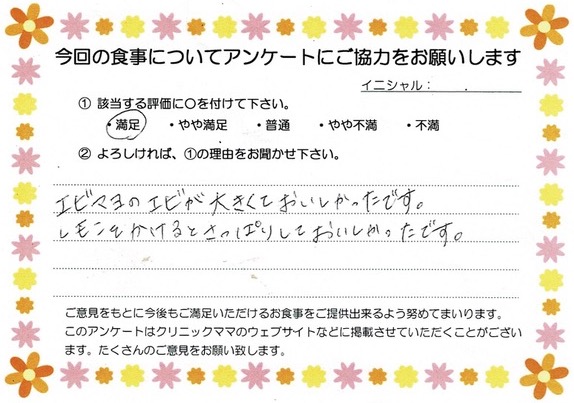 今回の食事についてアンケートにご協力をお願いします
イニシャル： .
① 該当する評価に○を付けて下さい。
・満足 ・やや満足 ・普通 ・やや不満 ・不満
② よろしければ、①の理由をお聞かせ下さい。
エビマヨのエビが大きくておいしかったです。
レモンをかけるとさっぱりしておいしかったです。
ご意見をもとに今後もご満足いただけるお食事をご提供出来るよう努めてまいります。
このアンケートはクリニックママのウェブサイトなどに掲載させていただくことがござい
ます。たくさんのご意見をお願い致します。